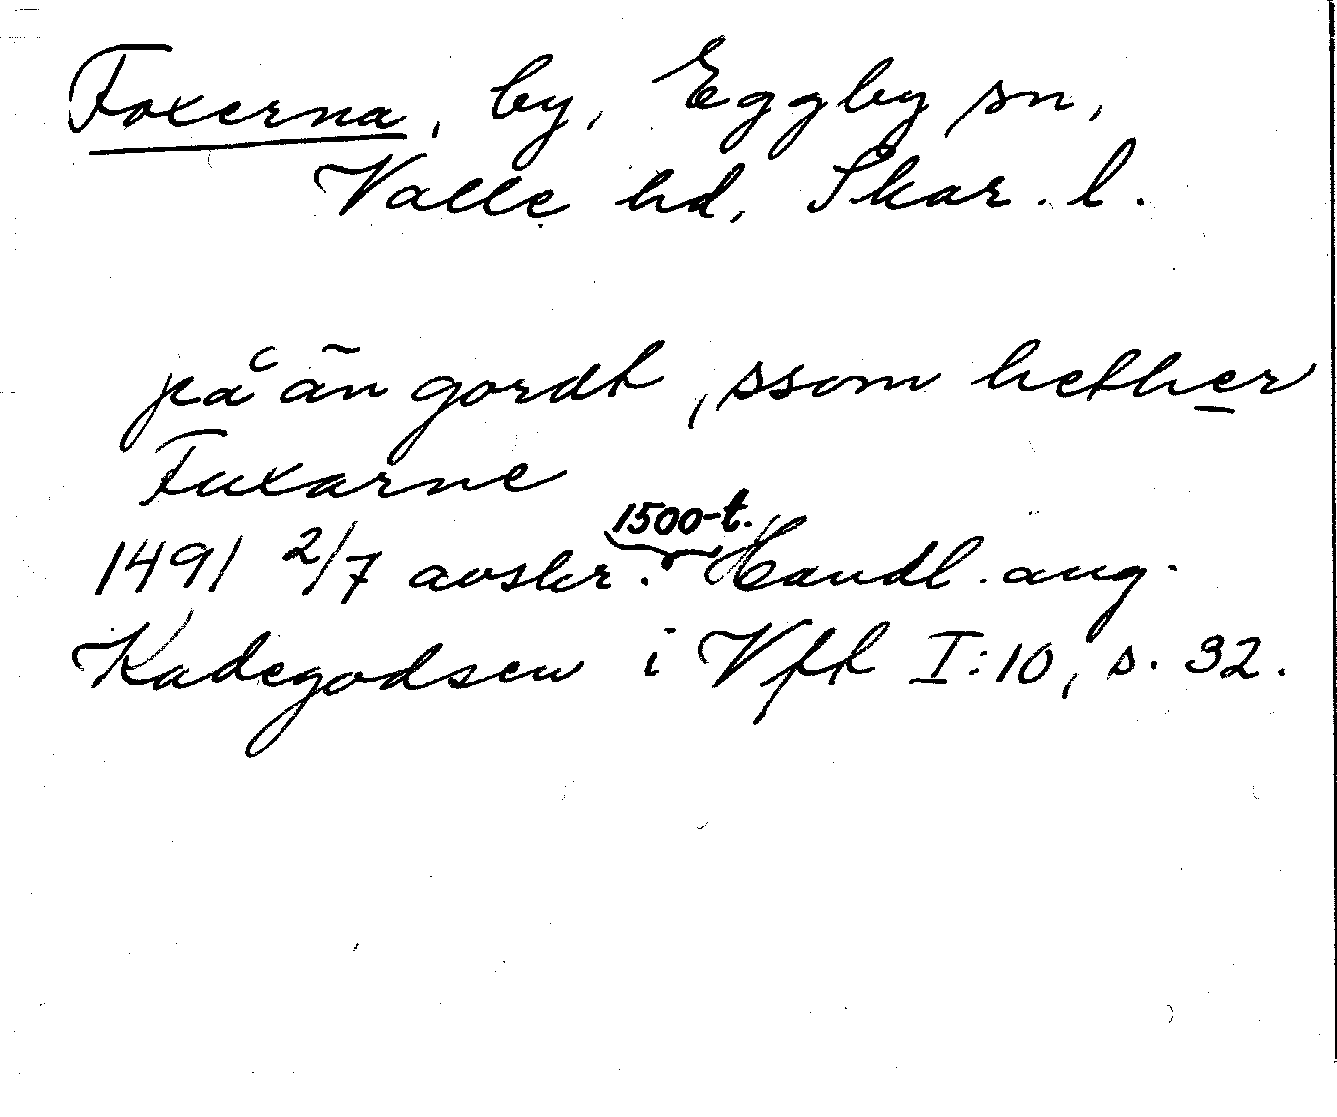 Foxerna, by, Eggby sn,
Valle hd, Skar. l.
på än gordt, ssom hether
Fuxarne
1491 2/7 avskr. 1500-t. Handl. ang.
Kadegodsen i Vfk I:10, s. 32.